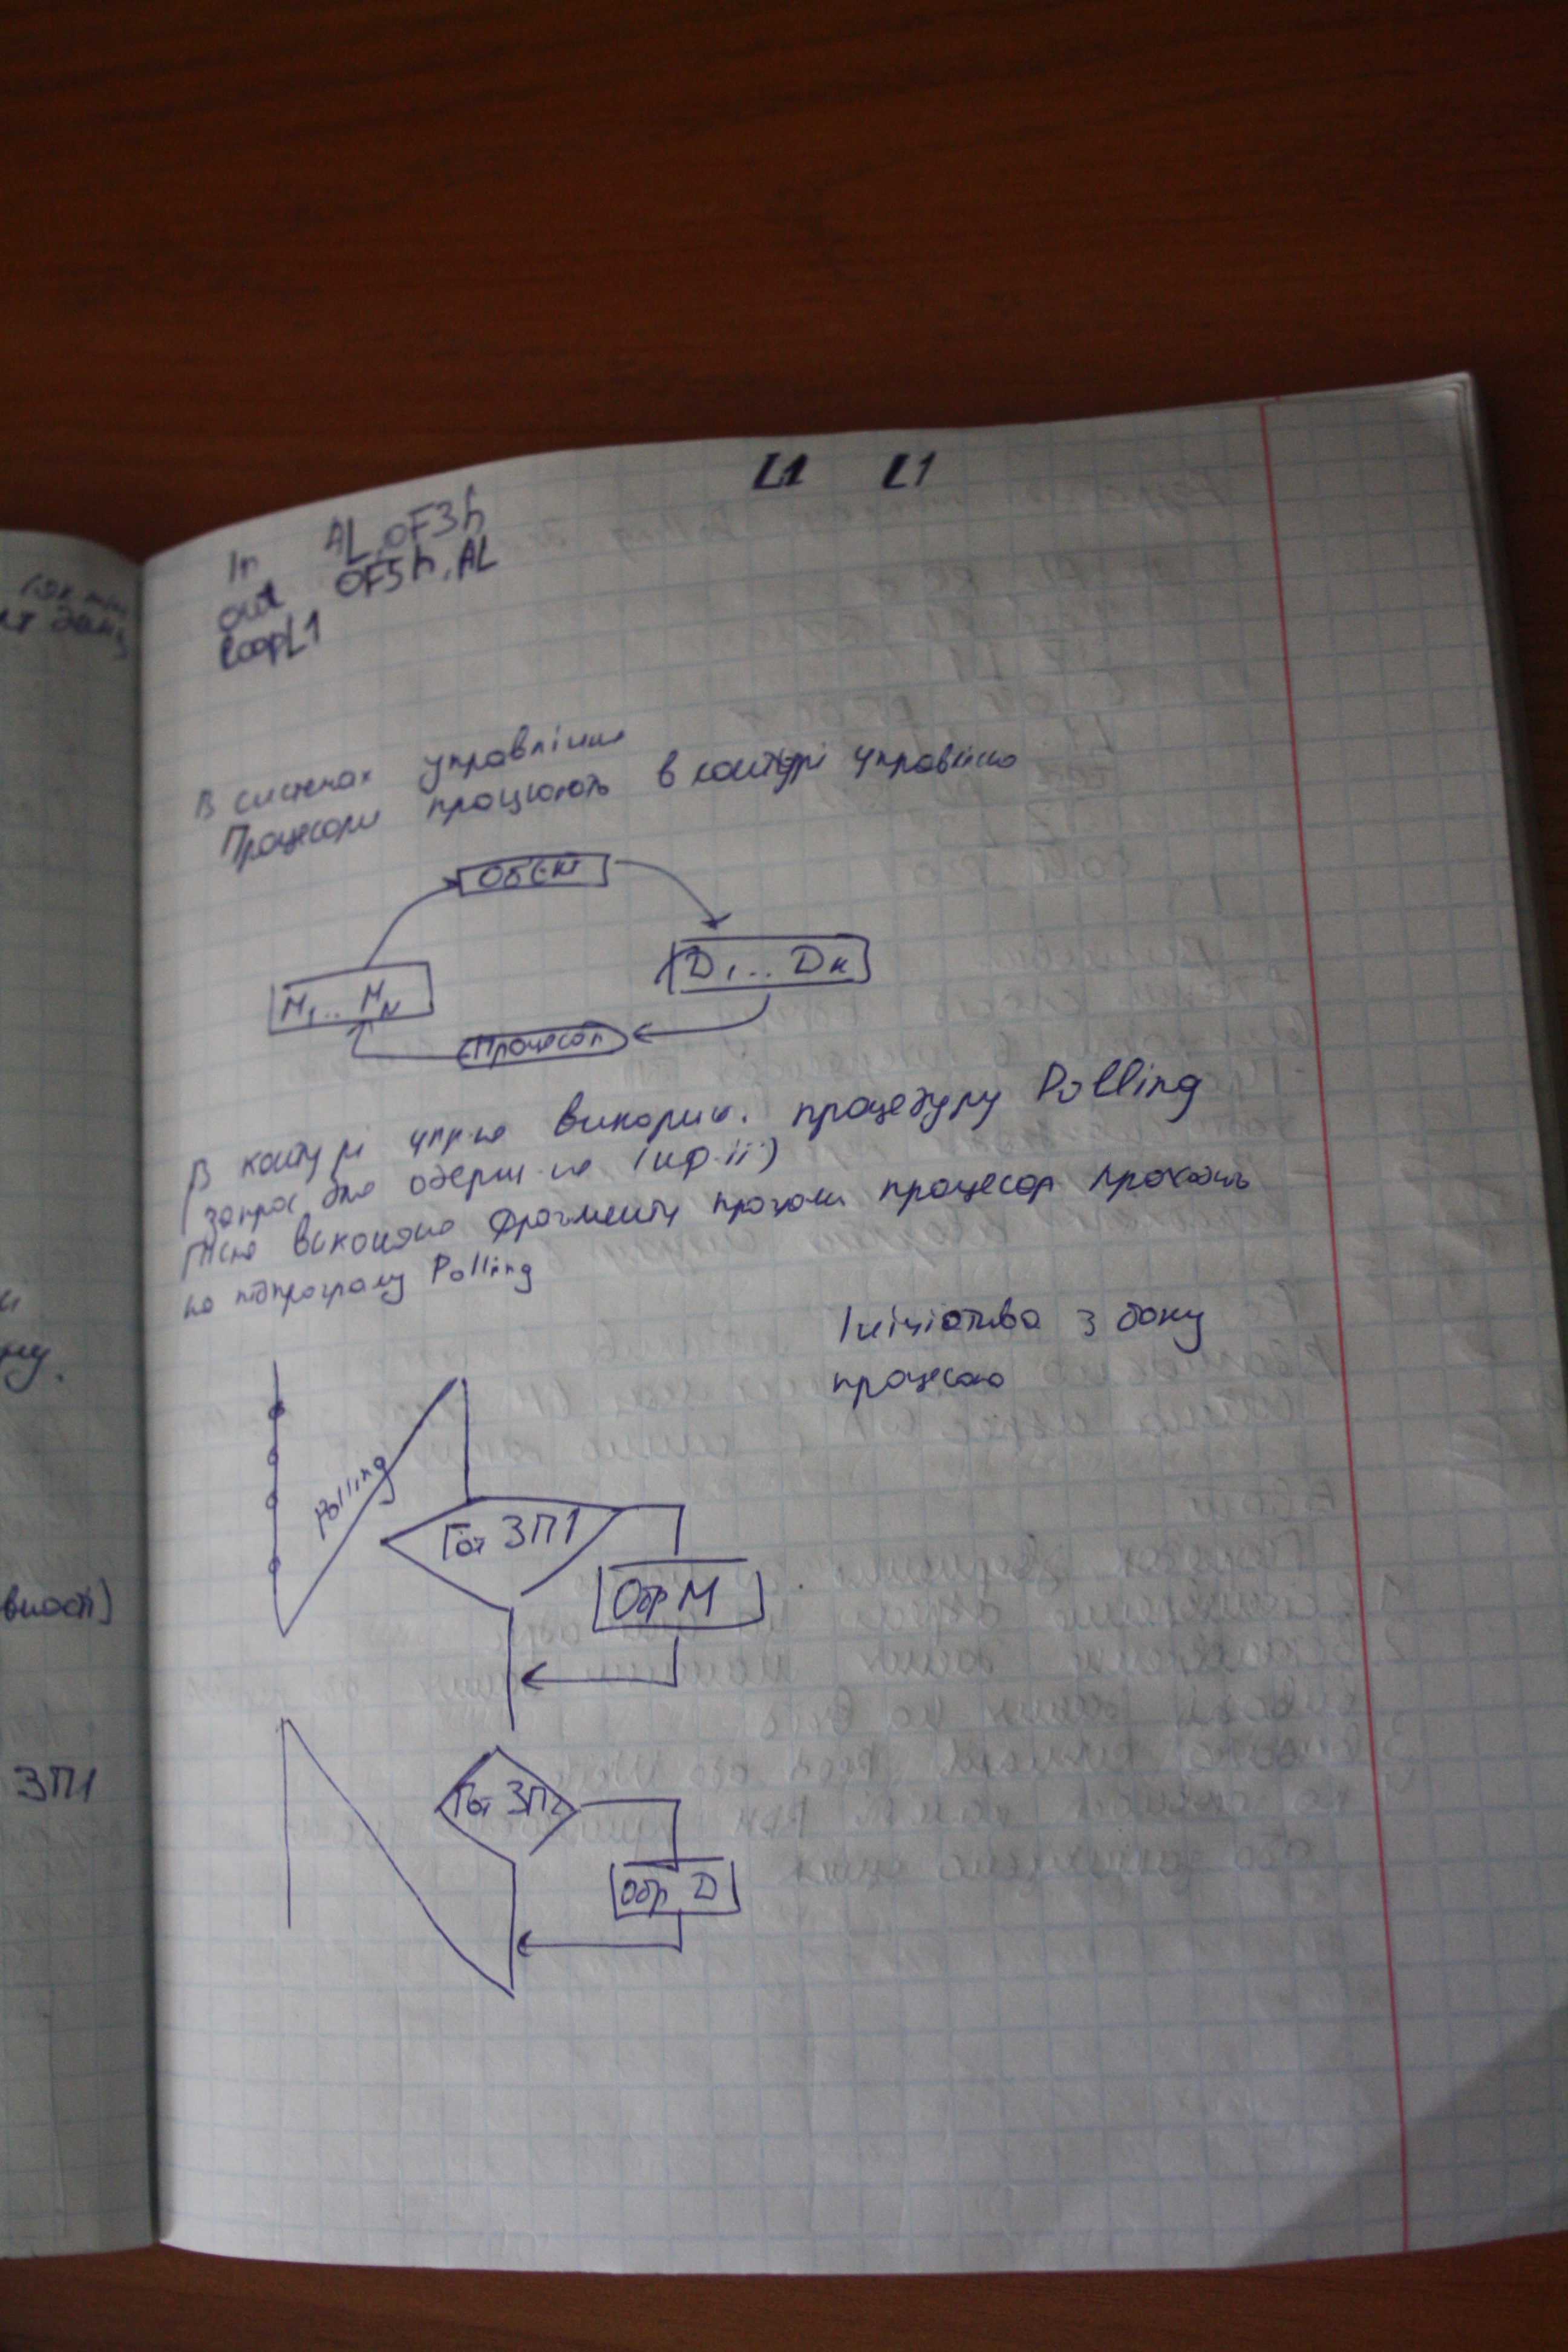 L1 L1
In AL, 0F3h
out 0F5h, AL
loop L1
В системах управління
Процесори працюють в контурі управління
Обєкт
М1... МN
D1... Dк
Процесор
В контурі упр-ня викорис. процедуру Polling
(запрос для одерж-ня інф.ії)
Після виконання фрагменту програми процесор проходить
на підпрограму Polling
Ініціатива з боку
процесора
Polling
Гот ЗП1
Обр М
Гот ЗП2
Обр D
вності)
ЗП1